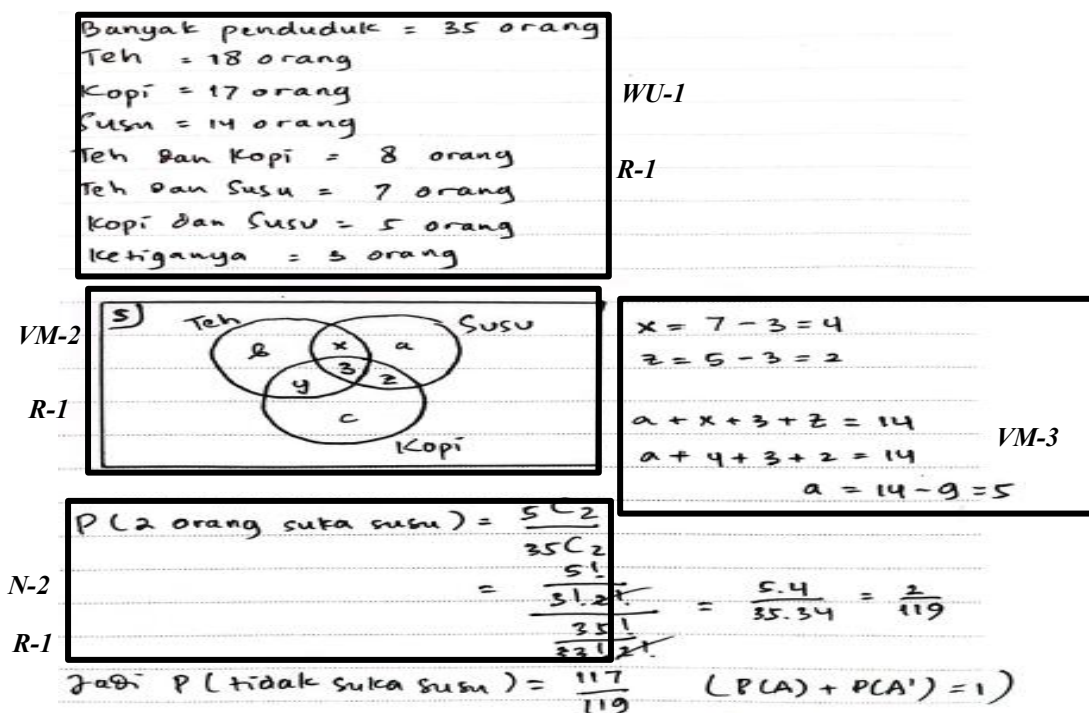 Banyak penduduk = 35 orang
Teh = 18 orang
Kopi = 17 orang
WU-1
Susu = 14 orang
Teh dan Kopi = 8 orang
R-1
Teh dan Susu = 7 orang
Kopi dan Susu = 5 orang
Ketiganya = 3 orang
VM-2
R-1
5)
Teh
Susu
b x a
3
y z
c
Kopi
x = 7 - 3 = 4
z = 5 - 3 = 2
a + x + 3 + z = 14
a + 4 + 3 + 2 = 14
a = 14 - 9 = 5
VM-3
N-2
R-1
P (2 orang suka susu) = 5C2 / 35C2
= 5! / 3!.2! / 35! / 33!2! = 5.4 / 35.34 = 2 / 119
Jadi P (tidak suka susu) = 117 / 119 (P(A) + P(A') = 1)